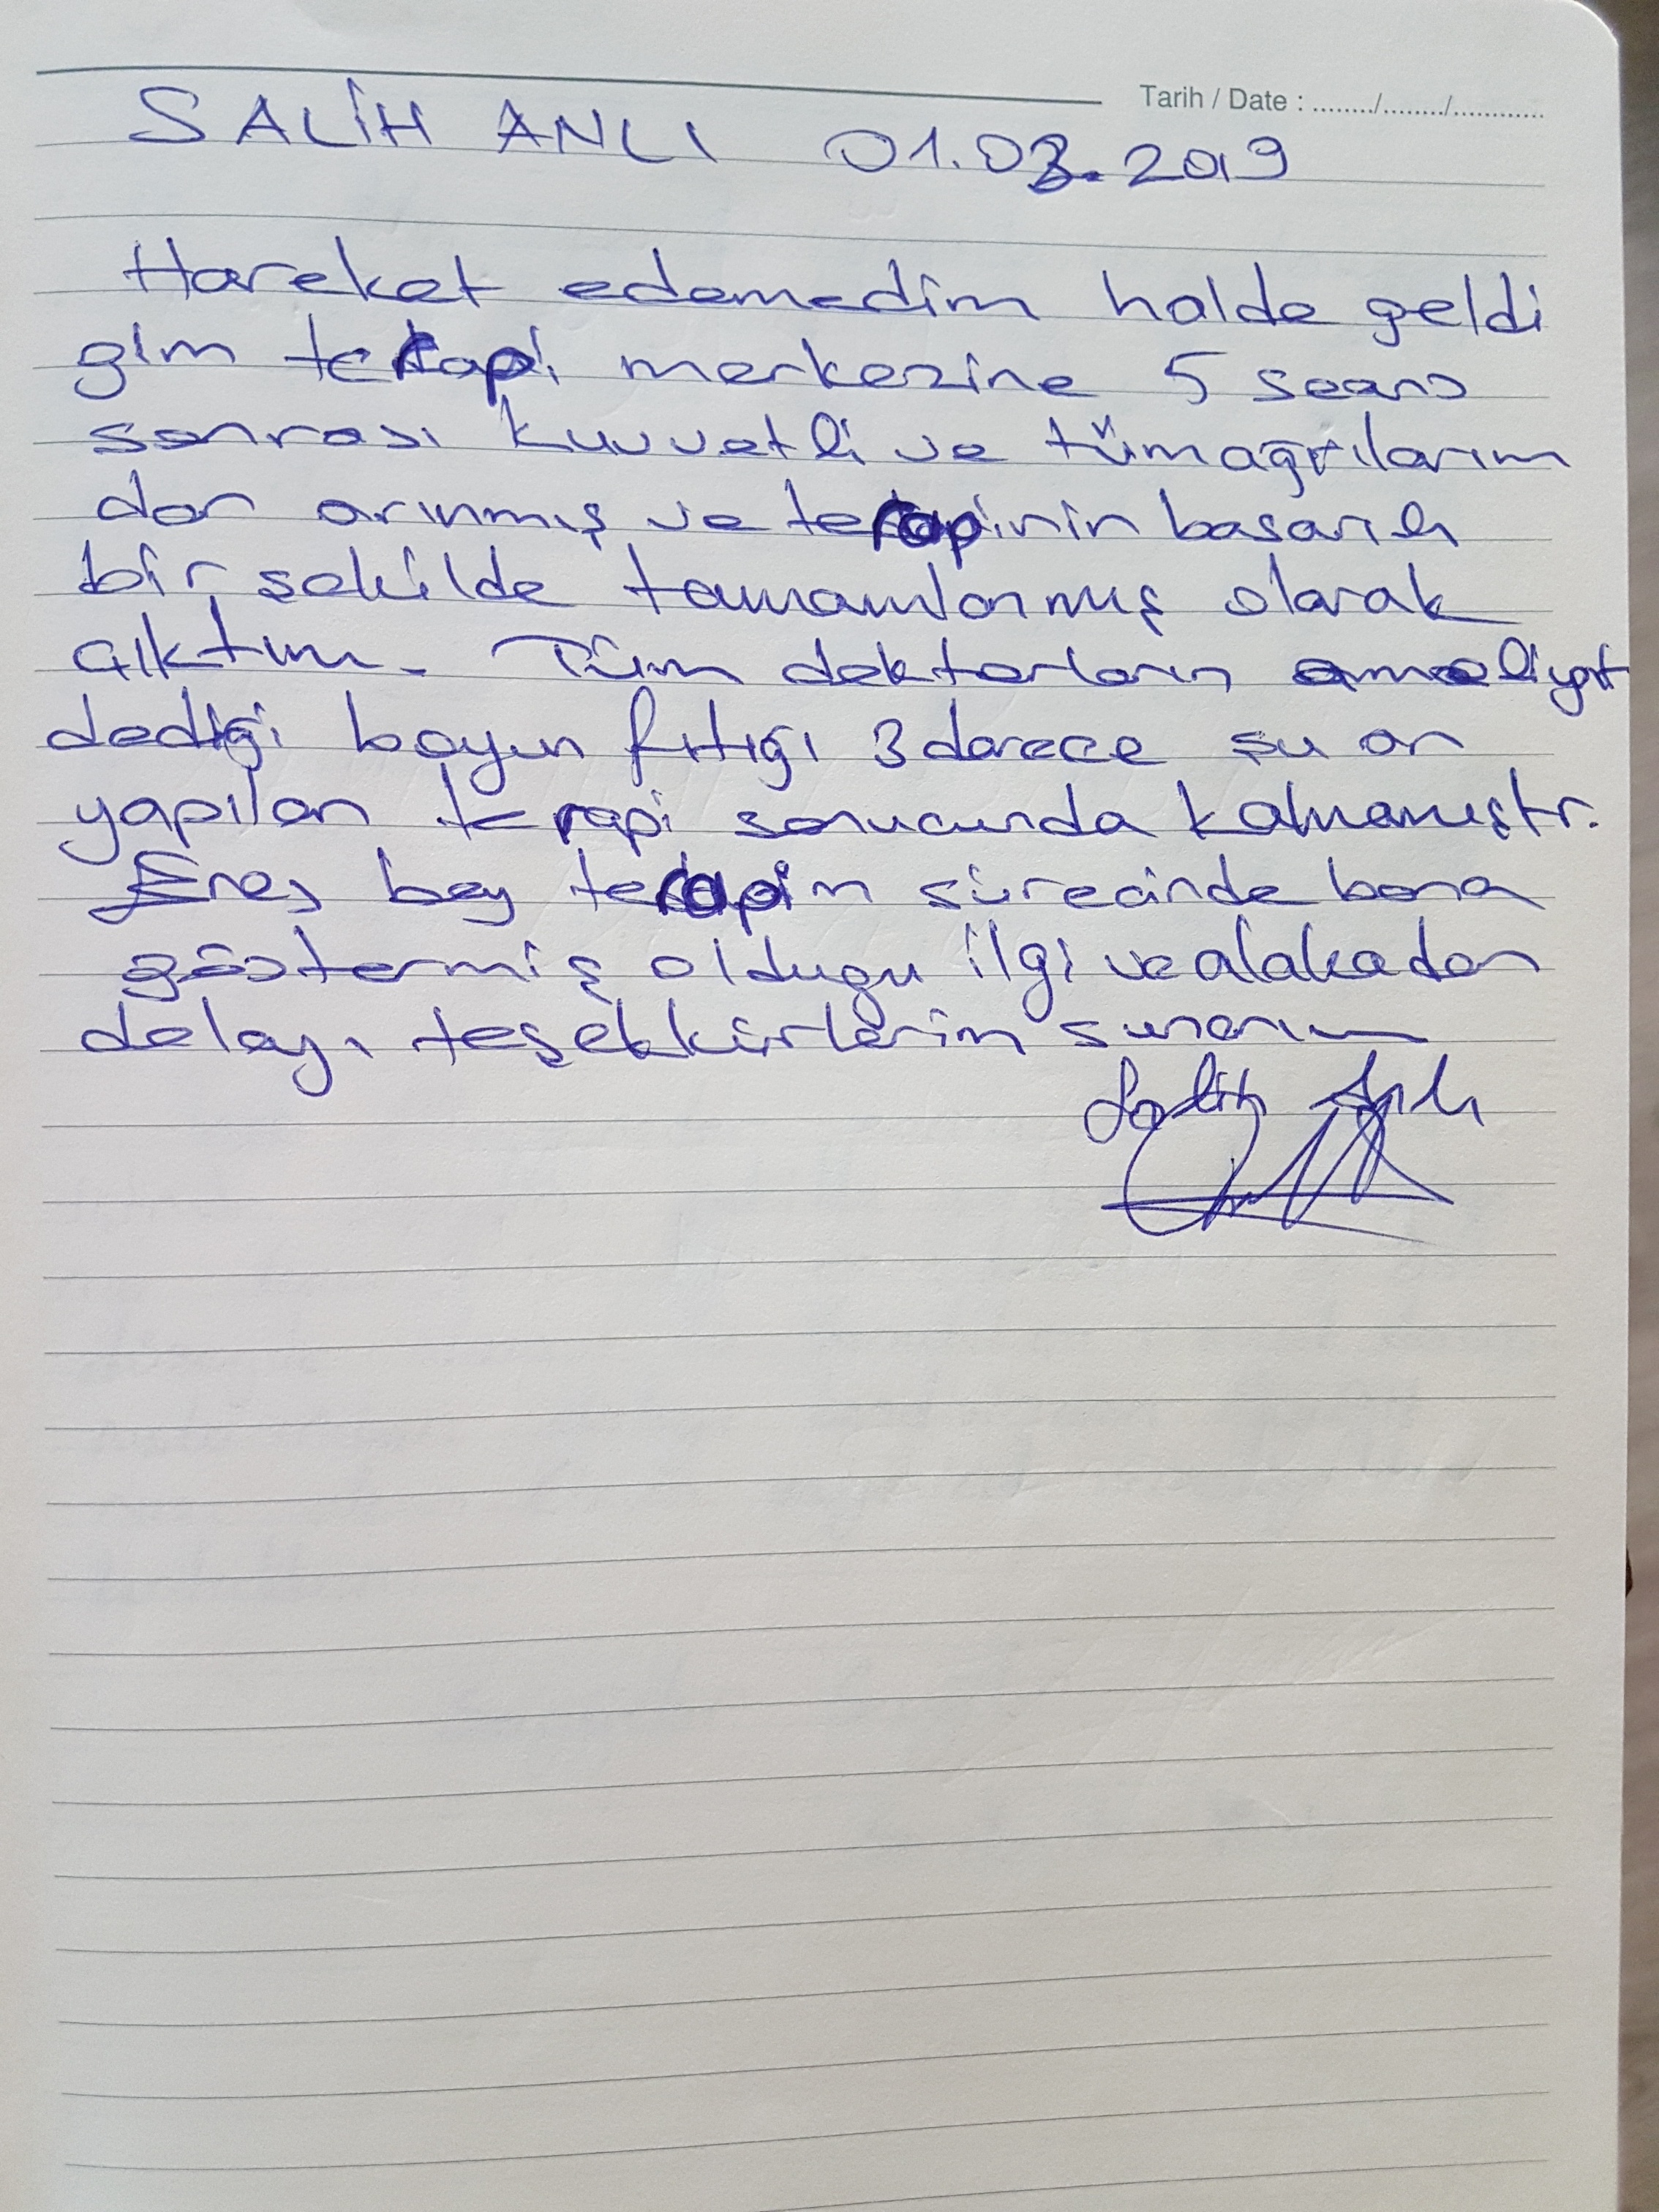 Tarih / Date : ......../......../............
SALİH ANLI 01.03.2019
Hareket edemedim halde geldi
gim terapi merkezine 5 seans
sonrası kuvvetli ve tüm ağrılarım
dan arınmış ve terapinin basarılı
bir şekilde tamamlanmış olarak
çıktım. Tüm doktorların ameliyat
dediği boyun fıtığı 3 derece şu an
yapılan terapi sonucunda kalmamıştr.
Enes bey terapim sürecinde bana
göstermiş oldugu ilgi ve alakadan
dolayı teşekkürlerim sunarım
Salih Anlı